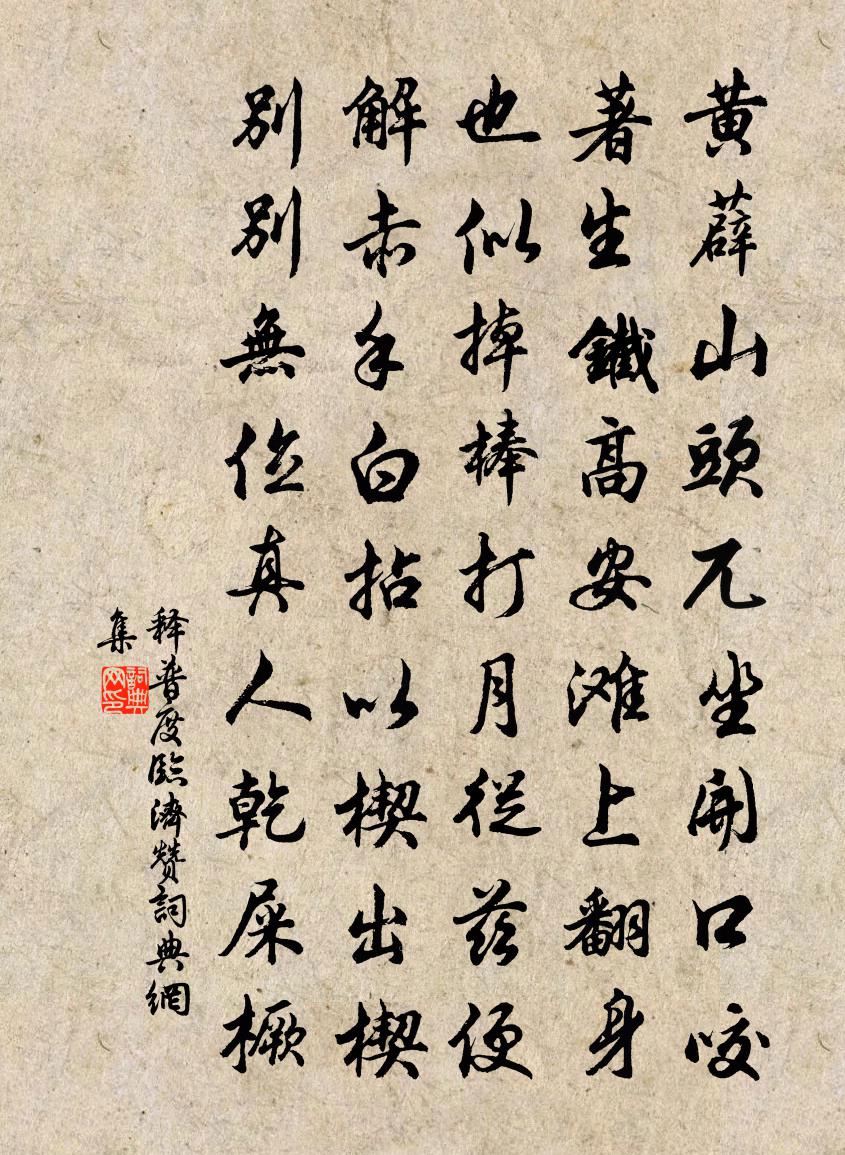 黄薜山頭兀坐開口咬
著生鐵高安滩上翻身
也似掉棒打月從茲便
解赤手白拈以楔出楔
別別無位真人乾屎橛
释普度臨濟赞詞典網
集
詞典
网印